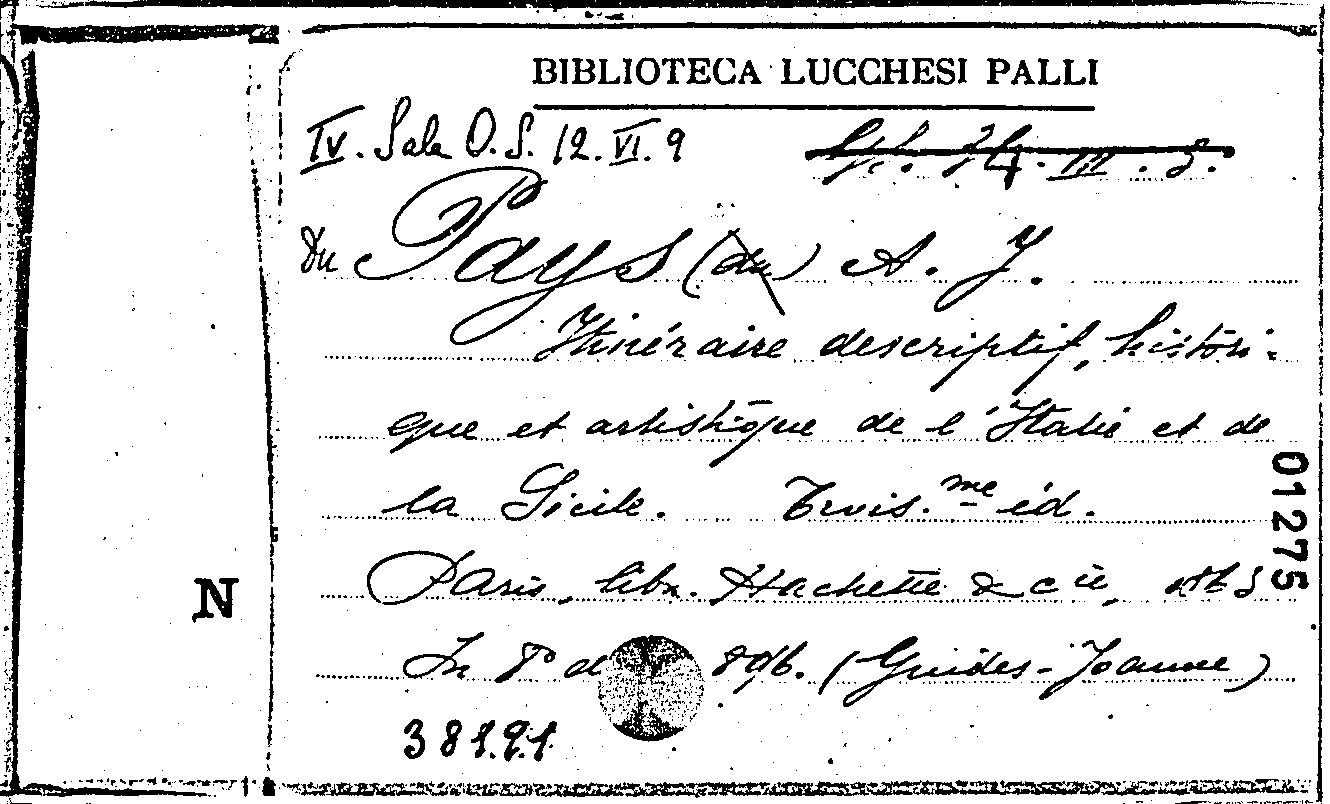 BIBLIOTECA LUCCHESI PALLI
IV. Sala O.S. 12.VI.9
III. 5.
Du Pays (du) A. J.
Itinéraire descriptif, histori-
que et artistique de l'Italie et de
la Sicile. Trois.me éd.
Paris, libr. Hachette & cie,
In 8° d 896. (Guides-Joanne)
N
01275